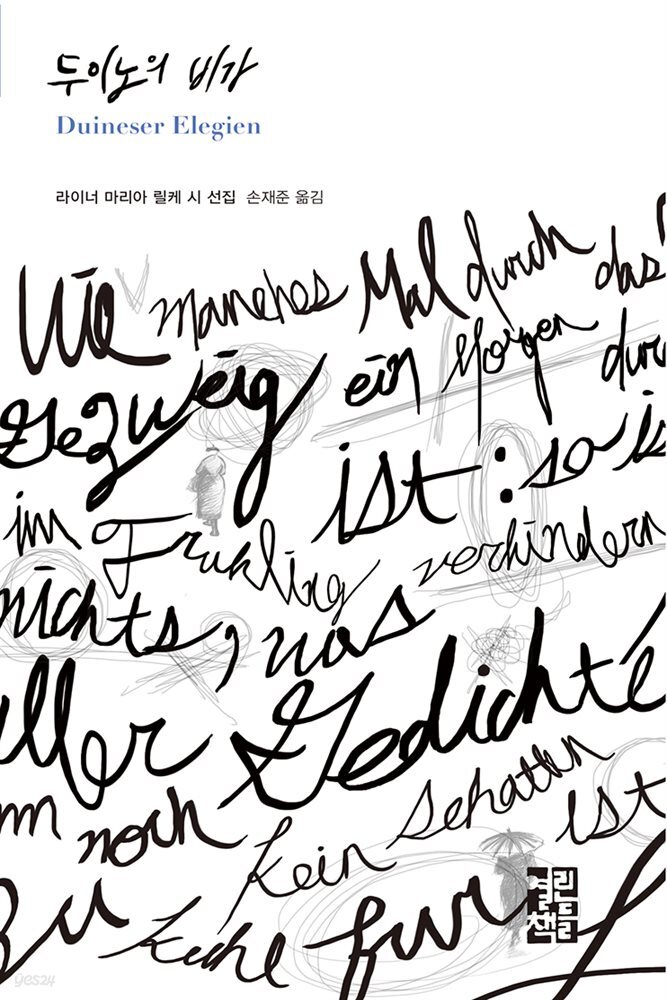 두이노의 비가
Duineser Elegien
라이너 마리아 릴케 시 선집 손재준 옮김
Wie manches Mal durch das
Gezweig ein Morgen durc
ist: so is
im Fruhling verhindern
nichts, was
aller Gedichte
nn noch kein Schatten ist
zu kuhl fur
열린책들
yes24